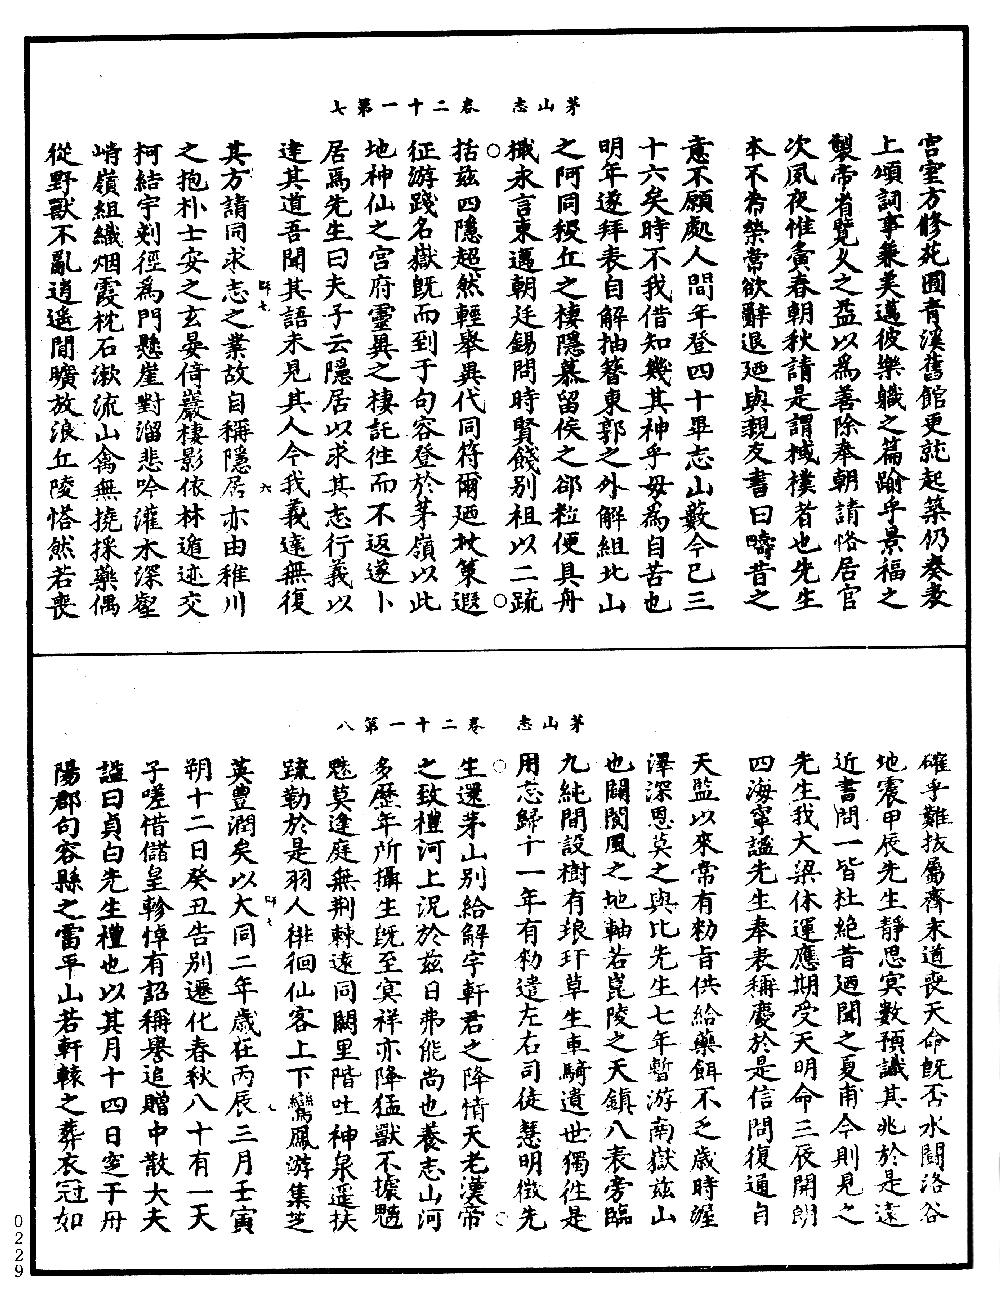 茅山志　卷二十一第七
宮室方修苑囿青溪舊館更就起築仍奏表
上頌詞事兼美邁彼樂職之篇踰乎景福之
製帝省覽久之益以爲善除奉朝請恪居官
次夙夜惟夤春朝秋請是謂棫樸者也先生
本不希榮常欲辭退廼與親友書曰疇昔之
意不願處人間年登四十畢志山藪今已三
十六矣時不我借知幾其神乎毋爲自苦也
明年遂拜表自解抽簪東郭之外解組北山
之阿同稷丘之棲隱慕留侯之卻粒便具舟
檝永言東邁朝廷錫問時賢餞別祖以二疏
括兹四隱超然輕舉異代同符爾廼杖策遐
征游踐名嶽旣而到于句容登於茅嶺以此
地神仙之宮府靈異之棲託往而不返遂卜
居焉先生曰夫子云隱居以求其志行義以
達其道吾聞其語未見其人今我義達無復
其方請同求志之業故自稱隱居亦由稚川
之抱朴士安之玄晏倚巖棲影依林遁迹交
柯結宇剡徑爲門懸崖對溜悲吟灌木深壑
峭嶺組織烟霞枕石漱流山禽無撓採藥偶
從野獸不亂逍遥閒曠放浪丘陵恬然若喪
茅山志　卷二十一第八
確乎難拔屬齊末道喪天命旣否水鬭洛谷
地震甲辰先生靜思冥數預識其兆於是遠
近書問一皆杜絶昔廼聞之夏甫今則見之
先生我大梁休運應期受天明命三辰開朗
四海寧謐先生奉表稱慶於是信問復通自
天監以來常有勑旨供給藥餌不乏歲時渥
澤深恩莫之與比先生七年暫游南嶽兹山
也闢閬風之地軸若崑陵之天鎮八表旁臨
九純間設樹有琅玕草生車騎遺世獨往是
用忘歸十一年有勑遣左右司徒慧明徴先
生還茅山別給解宇軒君之降情天老漢帝
之致禮河上況於兹日弗能尚也養志山河
多歷年所攝生旣至冥祥亦降猛獸不據魑
魅莫逢庭無荆棘遠同闕里階吐神泉遥扶
疏勒於是羽人徘徊仙客上下鸞鳳游集芝
英豐潤矣以大同二年歲在丙辰三月壬寅
朔十二日癸丑告別遷化春秋八十有一天
子嗟惜儲皇軫悼有詔稱譽追贈中散大夫
諡曰貞白先生禮也以其月十四日窆于丹
陽郡句容縣之雷平山若軒轅之葬衣冠如
0229